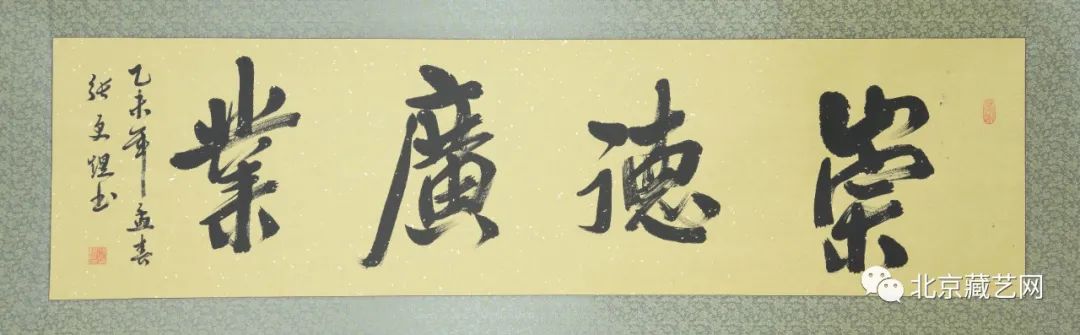 崇德廣業
乙未年孟春
張更煜书
北京藏艺网